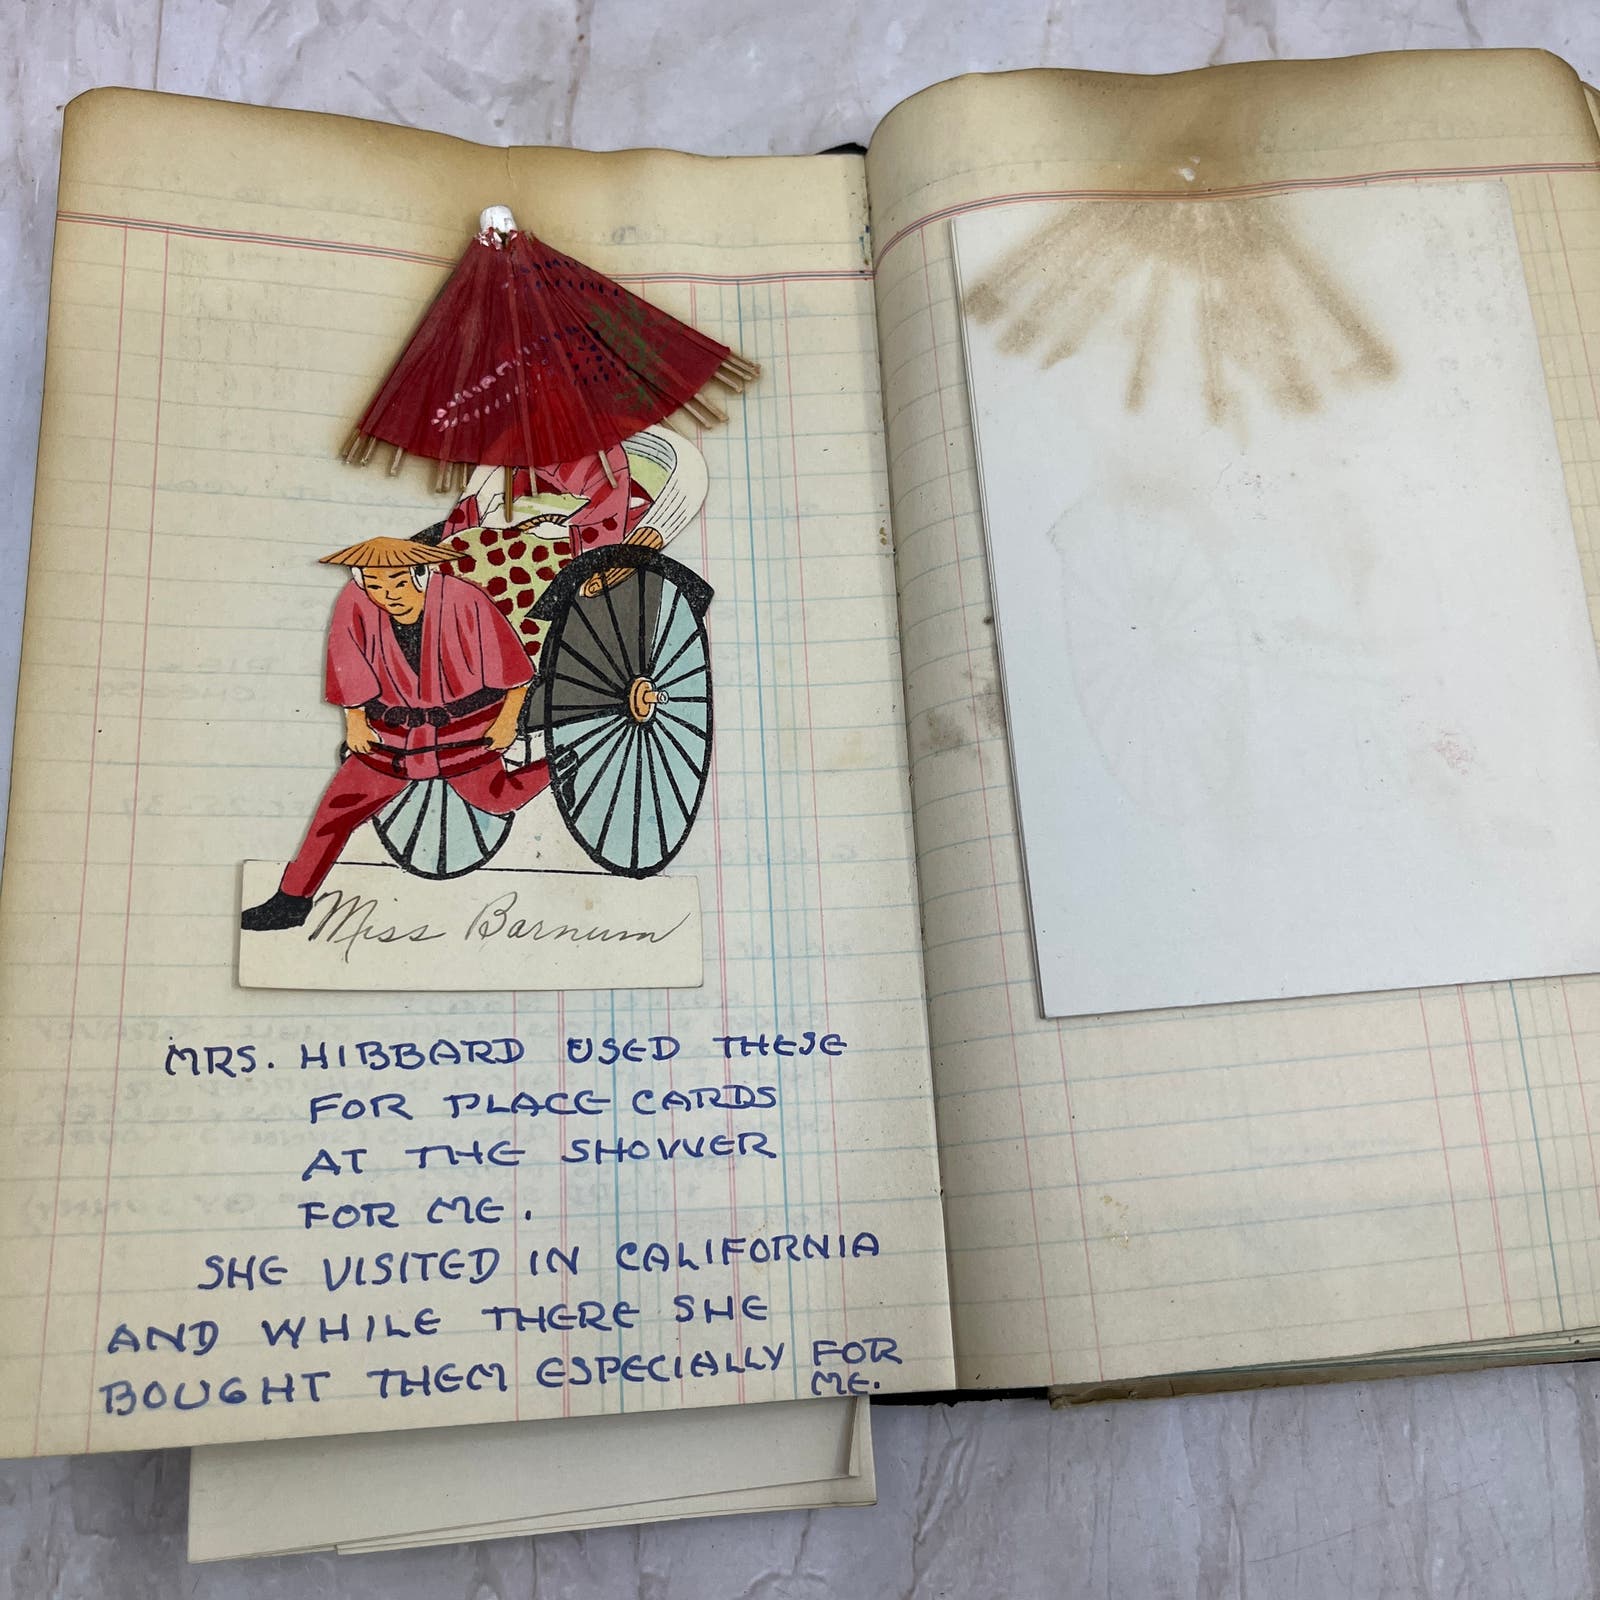 Miss Barnum
MRS. HIBBARD USED THESE
FOR PLACE CARDS
AT THE SHOWER
FOR ME.
SHE VISITED IN CALIFORNIA
AND WHILE THERE SHE
BOUGHT THEM ESPECIALLY FOR
ME.